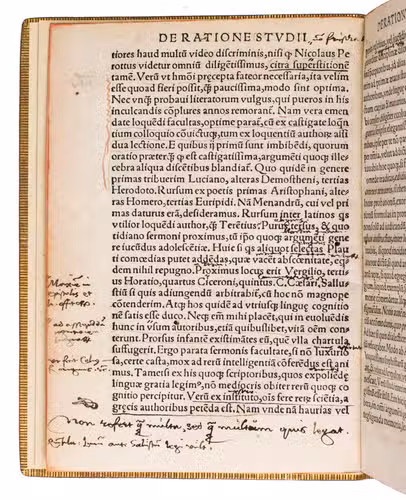 DE RATIONE STVDII,
tiores haud multū video discriminis, nisi ꝙ Nicolaus Pe
rottus videtur omniū diligētissimus, citra superstitionē
tamē. Verū vt hmōi pręcepta fateor necessaria, ita velim
esse quoad fieri possit, ꝙ̄ paucissima, modo sint optima.
Nec vnꝗ̄ probaui literatorum vulgus, qui pueros in his
inculcandis cōplures annos remorant̃. Nam vera emen
date loquēdi facultas, optime parat̃, cū ex castigate loquē
tium colloquio cōuictuꝗ, tum ex eloquentiū authorꝝ assi
dua lectione. E quibus ij primū sunt imbibēdi, quorum
oratio pręter ꝙ̄ ꝙ est castigatissima, argumēti quoꝗ ille
cebra aliqua discētibus blandiat̃. Quo quidē in genere
primas tribuerim Luciano, alteras Demostheni, tertias
Herodoto. Rursum ex poetis primas Aristophani, alte
ras Homero, tertias Euripidi. Nā Menandrū, cui vel pri
mas daturus erā, desideramus. Rursum inter latinos qs
vtilior loquēdi author, ꝙ̄ Terētius: Purus, tersus, & quo
tidiano sermoni proximus, tū ip̄o quoꝗ argumēti gene
re iucūdus adolescētiæ. Huic si qs aliquot selectas Plau
ti comœdias putet addēdas, quæ vacēt abscœnitate, eqͥ
dem nihil repugno. Proximus locus erit Vergilio, tertius
Horatio, quartus Ciceroni, quintus. C. Cæsari. Sallusti
um si qs adiungendū arbitrabit̃, cū hoc nō magnopere
cōtenderim. Atꝗ hos quidē ad vtriusꝗ linguę cognitio
nē satis esse duco. Neꝗ em̄ mihi placēt, qui in euoluēdis
hunc in vsum autoribus, etiā quibuslibet, vitā oēm con
terunt. Prorsus infantē existimātes eū, quē vlla chartula
suffugerit. Ergo parata sermonis facultate, si nō luxurio
sa, certe casta, mox ad rerū intelligentiā cōferēdus est ani
mus. Tametsi ex his quoꝗ scriptoribus, quos expoliēdę
linguæ gratia legimꝰ, nō mediocris obiter rerū quoꝗ co
gnitio percipitur. Verū ex instituto, oīs fere rerū sciētia, a
gręcis authoribus petēda est. Nam vnde nā haurias vel
non refert ꝙ̄ multa, sed ꝙ̄ multum quis legat.